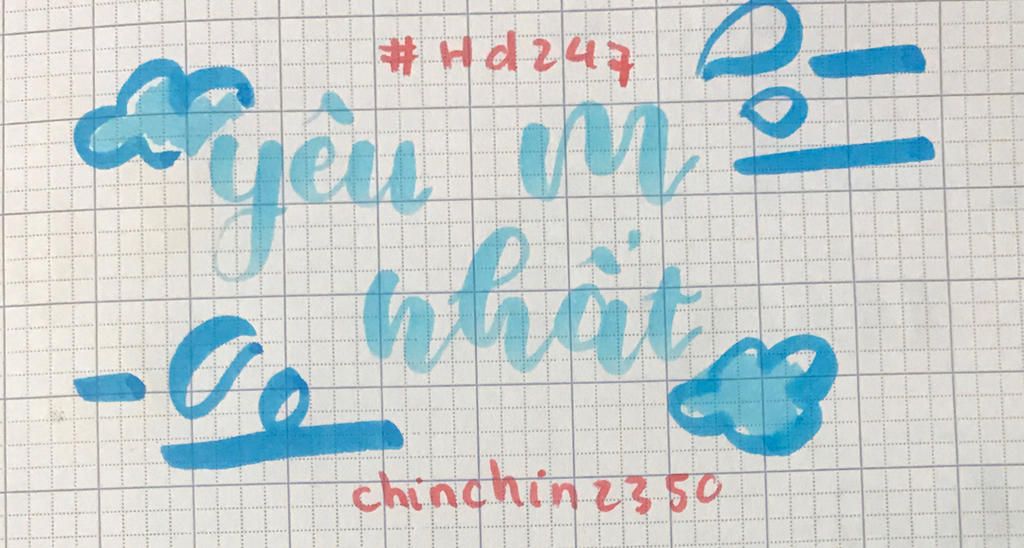 #Hd247
yêu m
nhất
chinchin2350